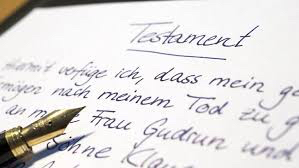 Testament
Hiermit verfüge ich, dass mein
mögen nach meinem Tod zu
Frau Gudrun und
Söhne Klau